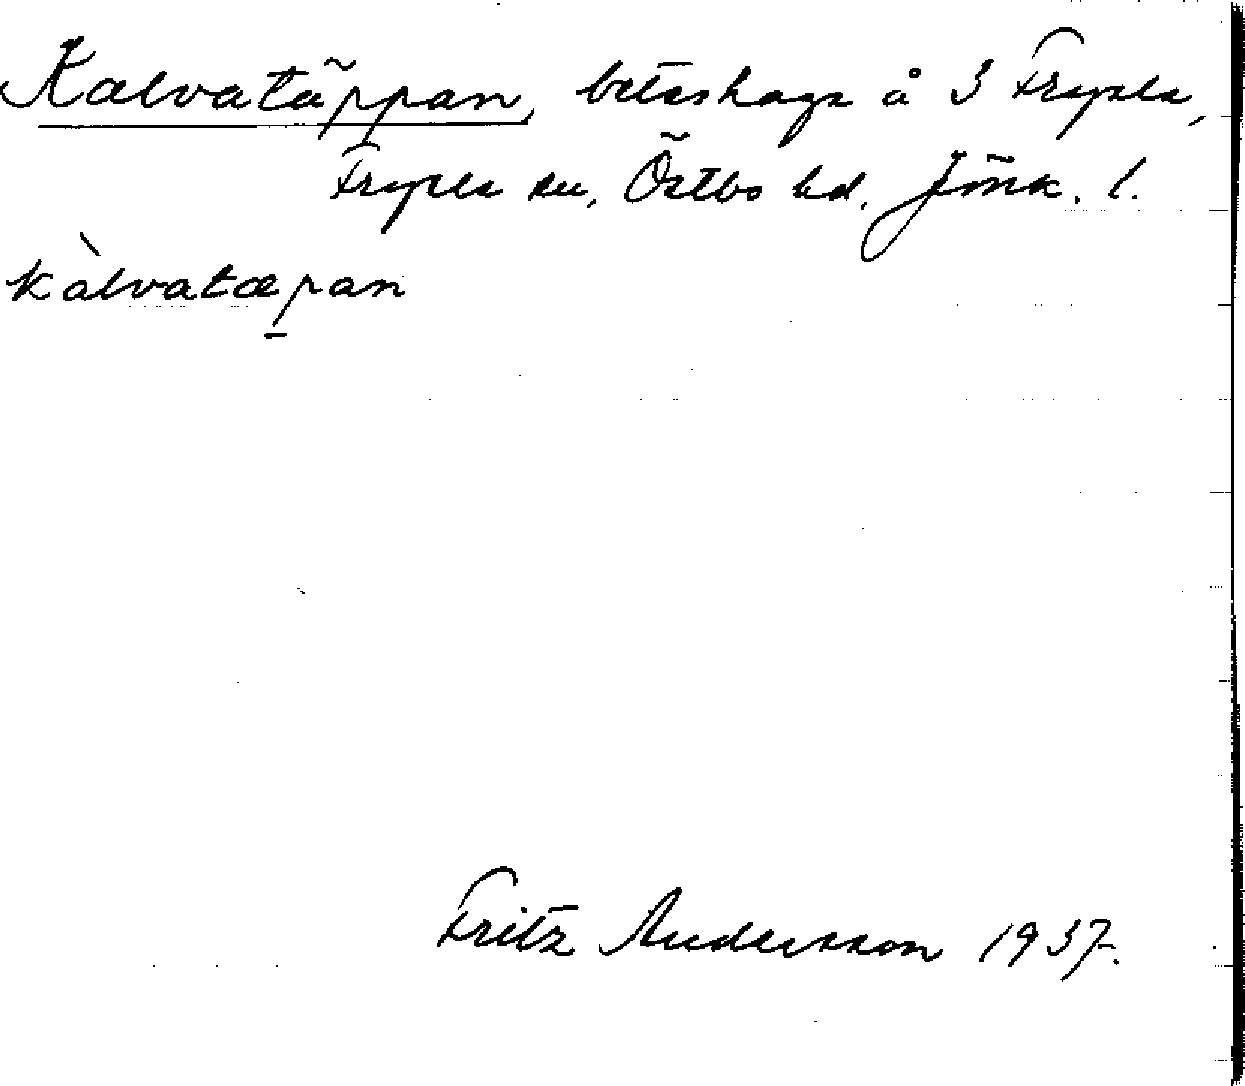 Kalvatäppan, beteshage å 3 Fryele,
Fryele sn, Östbo hd, Jönk. l.
kàlvatæp̠an
Fritz Andersson 1937.